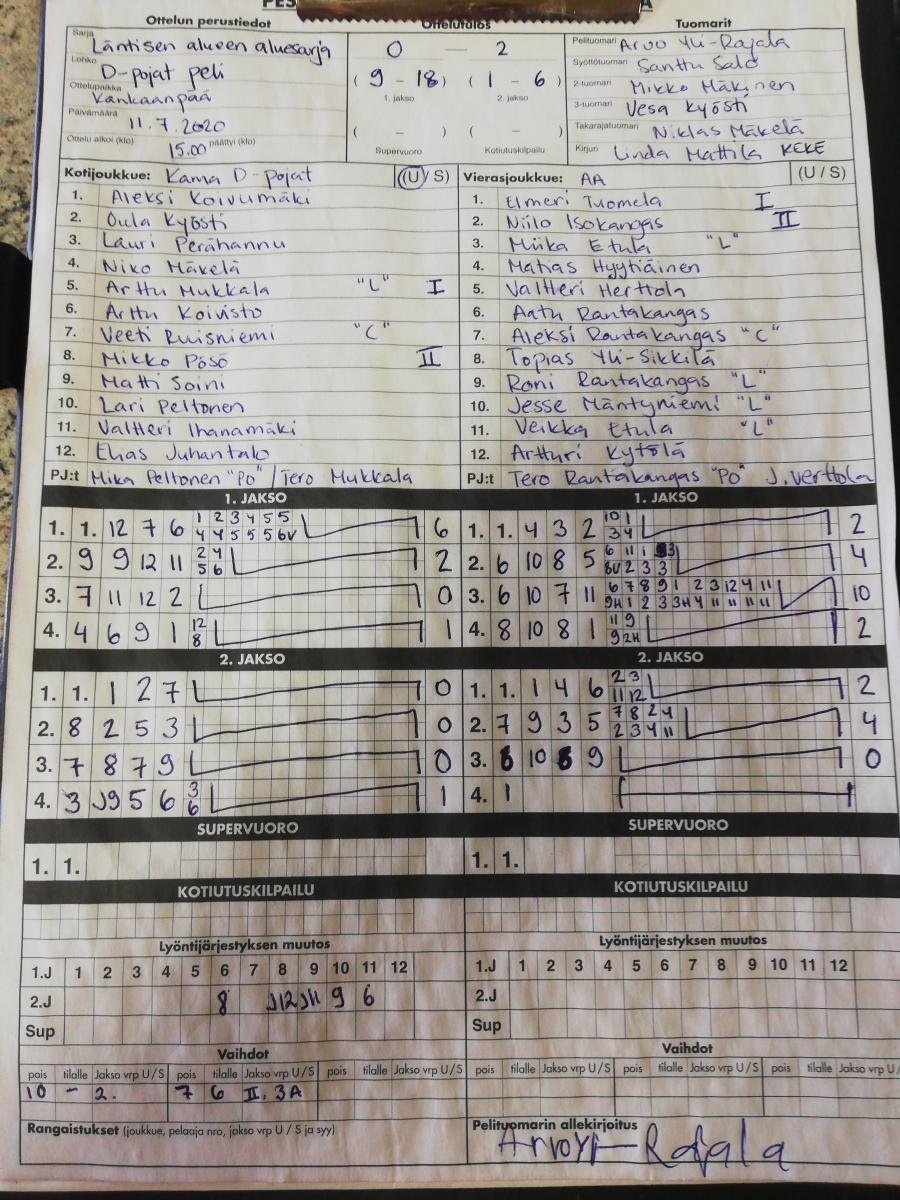 Ottelun perustiedot
Ottelutulos
Tuomarit
Sarja Läntisen alueen aluesarja
Lohko D-pojat peli
Ottelupaikka Kankaanpää
Päivämäärä 11.7.2020
Ottelu alkoi (klo) 15.00 päättyi (klo)
0 — 2
(9 - 18) (1 - 6)
1. jakso 2. jakso
( - ) ( - )
Supervuoro Kotiutuskilpailu
Pelituomari Arvo Yli-Rajala
Syöttötuomari Santtu Salo
2-tuomari Mikko Mäkinen
3-tuomari Vesa Kyösti
Takarajatuomari Niklas Mäkelä
Kirjuri Linda Mattila KEKE
Kotijoukkue: Kama D-pojat (U/S)
1. Aleksi Koivumäki
2. Oula Kyösti
3. Lauri Perähannu
4. Niko Mäkelä
5. Arttu Mukkala "L" I
6. Arttu Koivisto
7. Veeti Ruisniemi "C"
8. Mikko Pösö II
9. Matti Soini
10. Lari Peltonen
11. Valtteri Ihanamäki
12. Elias Juhantalo
PJ:t Mika Peltonen "Po" / Tero Mukkala
Vierasjoukkue: AA (U/S)
1. Elmeri Tuomela I
2. Niilo Isokangas II
3. Miika Etula "L"
4. Matias Hyytiäinen
5. Valtteri Herttola
6. Aatu Rantakangas
7. Aleksi Rantakangas "C"
8. Topias Yli-Sikkilä
9. Roni Rantakangas "L"
10. Jesse Mäntyniemi "L"
11. Veikka Etula "L"
12. Artturi Kytölä
PJ:t Tero Rantakangas "Po" J. Verttola
1. JAKSO
1. 1. 12 7 6 1 2 3 4 5 5 6
4 4 5 5 5 6V
2. 9 9 12 11 2 4 2
5 6
3. 7 11 12 2 0
4. 4 6 9 1 12 1
8
1. JAKSO
1. 1. 4 3 2 10 1 2
3 4
2. 6 10 8 5 6 11 1 3 4
8V 2 3 3
3. 6 10 7 11 6 7 8 9 1 2 3 12 4 11 10
9H 1 2 3 3H 4 11 11 11 11
4. 8 10 8 1 11 9 2
9 2H
2. JAKSO
1. 1. 1 2 7 0
2. 8 2 5 3 0
3. 7 8 7 9 0
4. 3 J9 5 6 3 1
6
2. JAKSO
1. 1. 1 4 6 2 3 2
11 12
2. 7 9 3 5 7 8 2 4 4
2 3 4 11
3. 10 9 0
4. 1
SUPERVUORO
1. 1.
SUPERVUORO
1. 1.
KOTIUTUSKILPAILU
KOTIUTUSKILPAILU
Lyöntijärjestyksen muutos
1.J 1 2 3 4 5 6 7 8 9 10 11 12
2.J 8 J12 J11 9 6
Sup
Lyöntijärjestyksen muutos
1.J 1 2 3 4 5 6 7 8 9 10 11 12
2.J
Sup
Vaihdot
pois tilalle Jakso vrp U/S pois tilalle Jakso vrp U/S pois tilalle Jakso vrp U/S
10 - 2. 7 6 II. 3A
Vaihdot
pois tilalle Jakso vrp U/S pois tilalle Jakso vrp U/S pois tilalle Jakso vrp U/S
Rangaistukset (joukkue, pelaaja nro, jakso vrp U / S ja syy)
Pelituomarin allekirjoitus
Arvo Yli-Rajala